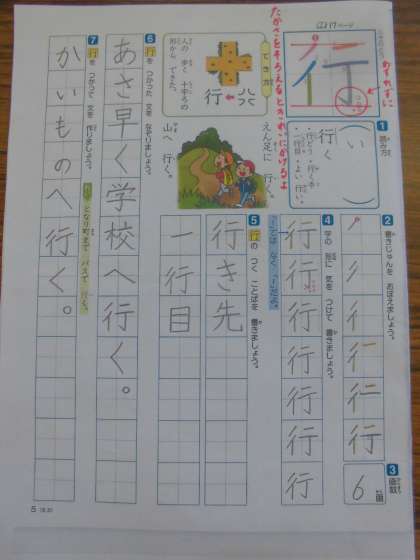 行
たかさをそろえるときれいにかけるよ
できかた
人の 歩く 十字ろの
形から できた。
行
えん足に 行く。
山へ 行く。
1 読み方
(い)
行く
2 書きじゅんを おぼえましょう。
行
3 画数
6画
4 字の 形に 気を つけて 書きましょう。
行
行
行
行
行
行
行
行
5 行の つく ことばを 書きましょう。
行き先
一行目
6 行を つかった 文を なぞりましょう。
あさ早く学校へ行く。
7 行を つかって 文を 作りましょう。
れい となり町まで バスで 行く。
かいものへ行く。
5